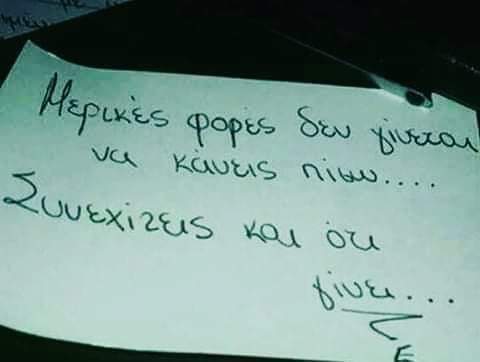 Μερικές φορές δεν γίνεται
να κάνεις πίσω....
Συνεχίζεις και ότι
γίνει...